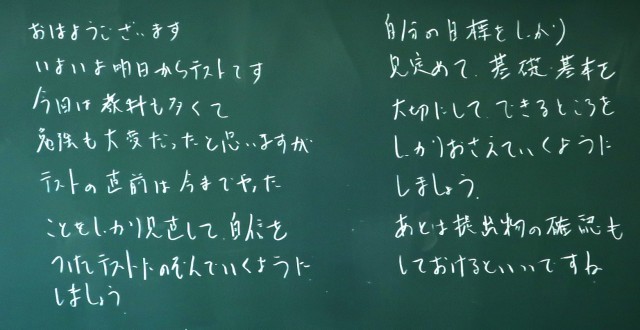 おはようございます
いよいよ明日からテストです
今回は教科も多くて
勉強も大変だったと思いますが
テストの直前は今までやった
ことをしっかり見直して、自信を
つけてテストにのぞんでいくように
しましょう
自分の目標をしっかり
見定めて、基礎・基本を
大切にして、できるところを
しっかりおさえていくように
しましょう。
あとは提出物の確認も
しておけるといいですね